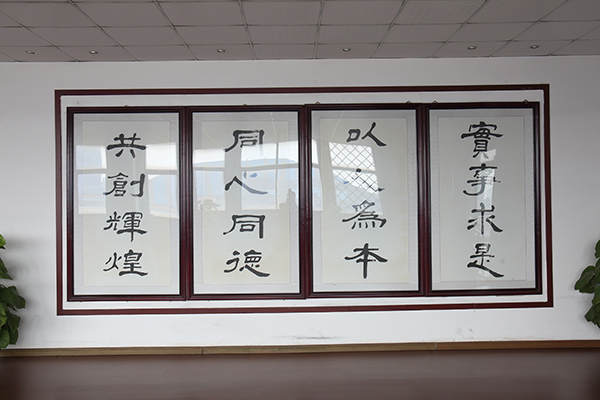 實事求是
以人為本
同心同德
共創輝煌